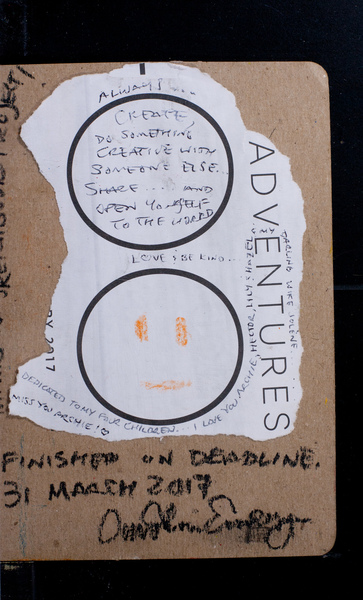 ALWAYS....
CREATE,
DO SOMETHING
CREATIVE WITH
SOMEONE ELSE..
SHARE.... AND
OPEN YOURSELF
TO THE WORLD
LOVE & BE KIND..
ADVENTURES
DARLING WIFE
2017
DEDICATED TO MY FOUR CHILDREN... I LOVE YOU ARCHIE, HECTOR, LILY & HAZEL
MISS YOU ARCHIE!
FINISHED ON DEADLINE.
31 MARCH 2017